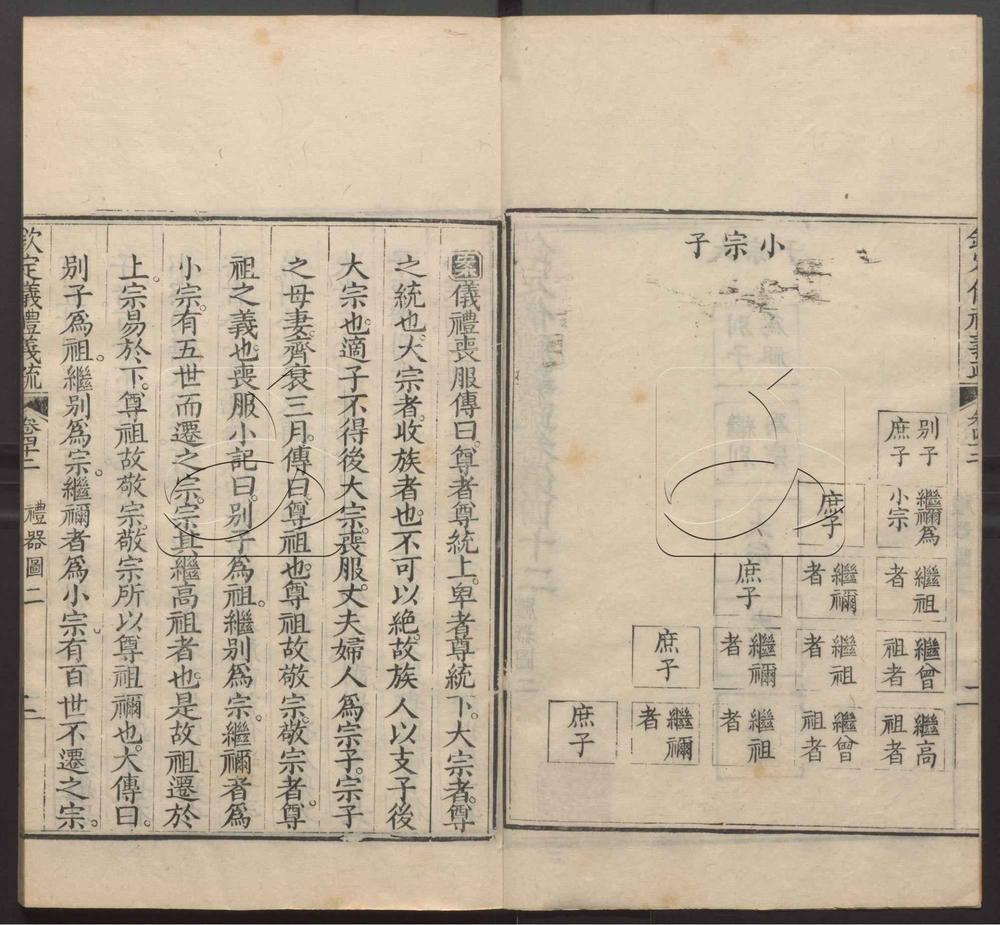 小宗子
別子庶子
繼禰爲小宗
庶子
繼祖者
繼禰者
庶子
繼曾祖者
繼祖者
繼禰者
庶子
繼高祖者
繼曾祖者
繼祖者
繼禰者
庶子
案儀禮喪服傳曰。尊者尊統上。卑者尊統下。大宗者。尊
之統也。大宗者。收族者也。不可以絶。故族人以支子後
大宗也。適子不得後大宗。喪服。丈夫婦人爲宗子。宗子
之母妻。齊衰三月。傳曰。尊祖也。尊祖故敬宗。敬宗者。尊
祖之義也。喪服小記曰。別子爲祖。繼別爲宗。繼禰者爲
小宗。有五世而遷之宗。宗其繼高祖者也。是故祖遷於
上。宗易於下。尊祖故敬宗。敬宗所以尊祖禰也。大傳曰。
別子爲祖。繼別爲宗。繼禰者爲小宗。有百世不遷之宗。
欽定儀禮義疏 卷四十二 禮器圖二 二